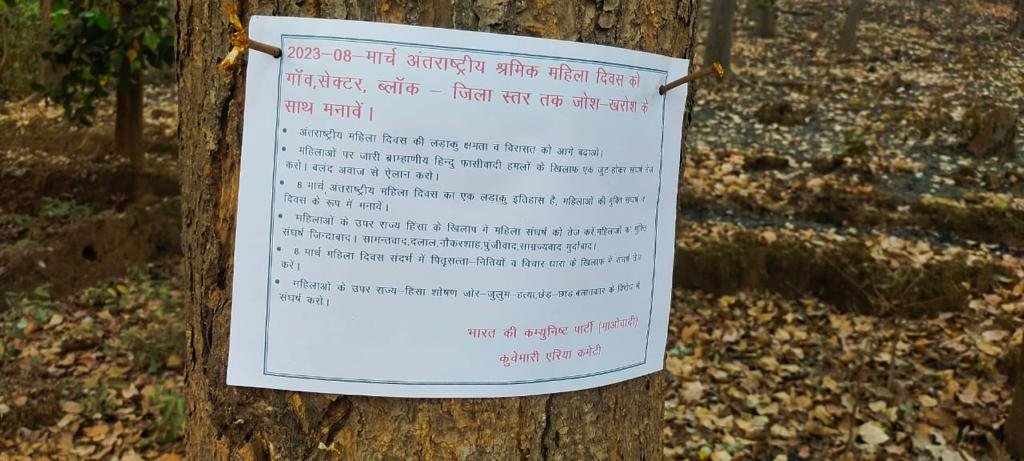 2023-08-मार्च अंतराष्ट्रीय श्रमिक महिला दिवस को
गाँव,सेक्टर, ब्लॉक - जिला स्तर तक जोश-खरोश के
साथ मनावें।
• अंतराष्ट्रीय महिला दिवस की लड़ाकु क्षमता व विरासत को आगे बढ़ाओ।
• महिलाओं पर जारी ब्राम्हाणीय हिन्दु फासीवादी हमलों के खिलाफ एक जुट होकर संघर्ष तेज
करो। बलंद अवाज से ऐलान करो।
• 8 मार्च, अंतराष्ट्रीय महिला दिवस का एक लड़ाकु इतिहास है, महिलाओं की मुक्ति संघर्ष
दिवस के रूप में मनावें।
• महिलाओं के उपर राज्य हिंसा के खिलाप में महिला संघर्ष को तेज करें,महिलाओं का मुक्ति
संघर्ष जिन्दाबाद। सामन्तवाद,दलाल,नौकरशाह,पुंजीवाद,साम्रज्यवाद मुर्दाबाद।
• 8 मार्च महिला दिवस संदर्भ में पितृसत्ता-नितियों व विचार धारा के खिलाफ में संघर्ष तेज
करें।
• महिलाओं के उपर राज्य-हिंसा शोषण जोर-जुलुम-हत्या,छेड़-छाड़,बलात्कार के विरोध में
संघर्ष करो।
भारत की कम्युनिष्ट पार्टी (माओवादी)
कुवेमारी एरिया कमेटी